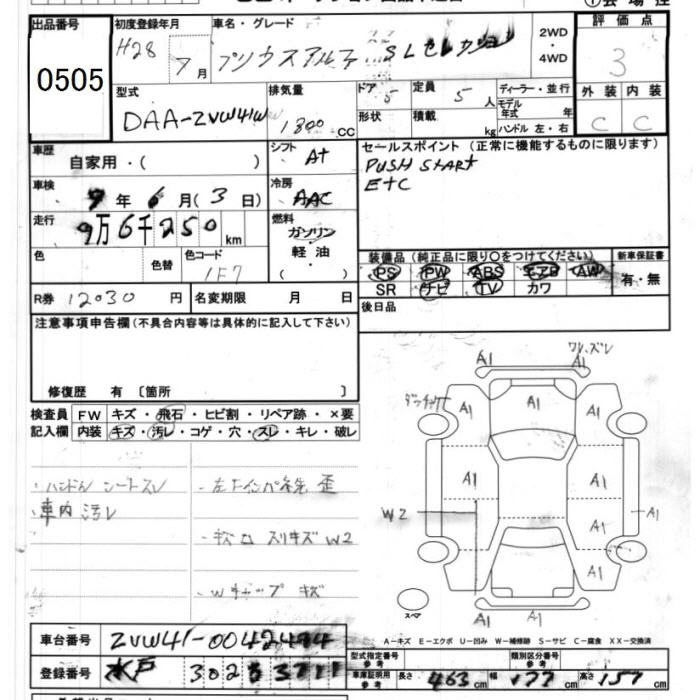 出品番号 初度登録年月 車名・グレード 2WD 評価点
0505 H28 7月 プリウスアルファ SLセレクション ・ 3
4WD
型式 排気量 ドア 5 定員 5人 ディーラー・並行 外装 内装
DAA-ZVW41W 1800 CC 形状 積載 kg モデル年式 年 C C
ハンドル 左・右
車歴 自家用・( ) シフト A+ セールスポイント(正常に機能するものに限ります)
車検 9年6月(3日) 冷房 AAC PUSH START
走行 9万6千250km 燃料 ガソリン・ ETC
軽油・
( )
色 色替 色コード 1F7 装備品(純正品に限り○をつけてください) 新車保証書
PS PW ABS エアB AW 有・無
R券 12030円 名変期限 月 日 SR ナビ TV カワ
後日品
注意事項申告欄(不具合内容等は具体的に記入して下さい)
修復歴 有 〔箇所 〕
検査員 FW キズ・飛石・ヒビ割・リペア跡・×要
記入欄 内装 キズ・汚レ・コゲ・穴・スレ・キレ・破レ
・ハンドル シートスレ ・左下インパネ先 歪
・車内 汚レ
スリキズ W2
・Wキャップ キズ
A1 A1
A1 A1 A1
A1 A1 A1
W2 A1 A1
A1 A1
スペア
A−キズ E−エクボ U−凹み W−補修跡 S−サビ C−腐食 XX−交換済
車台番号 ZVW41-0042494
型式指定番号 参考 類別区分番号 参考
登録番号 水戸 302 車庫証明用 参考 長さ 463cm 幅 177cm 高さ 157cm